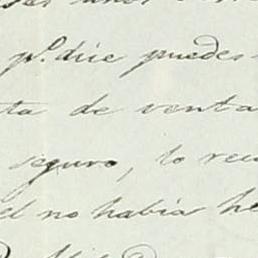 pº. dice puedes
ta de venta
seguro, lo rec
el no habia he